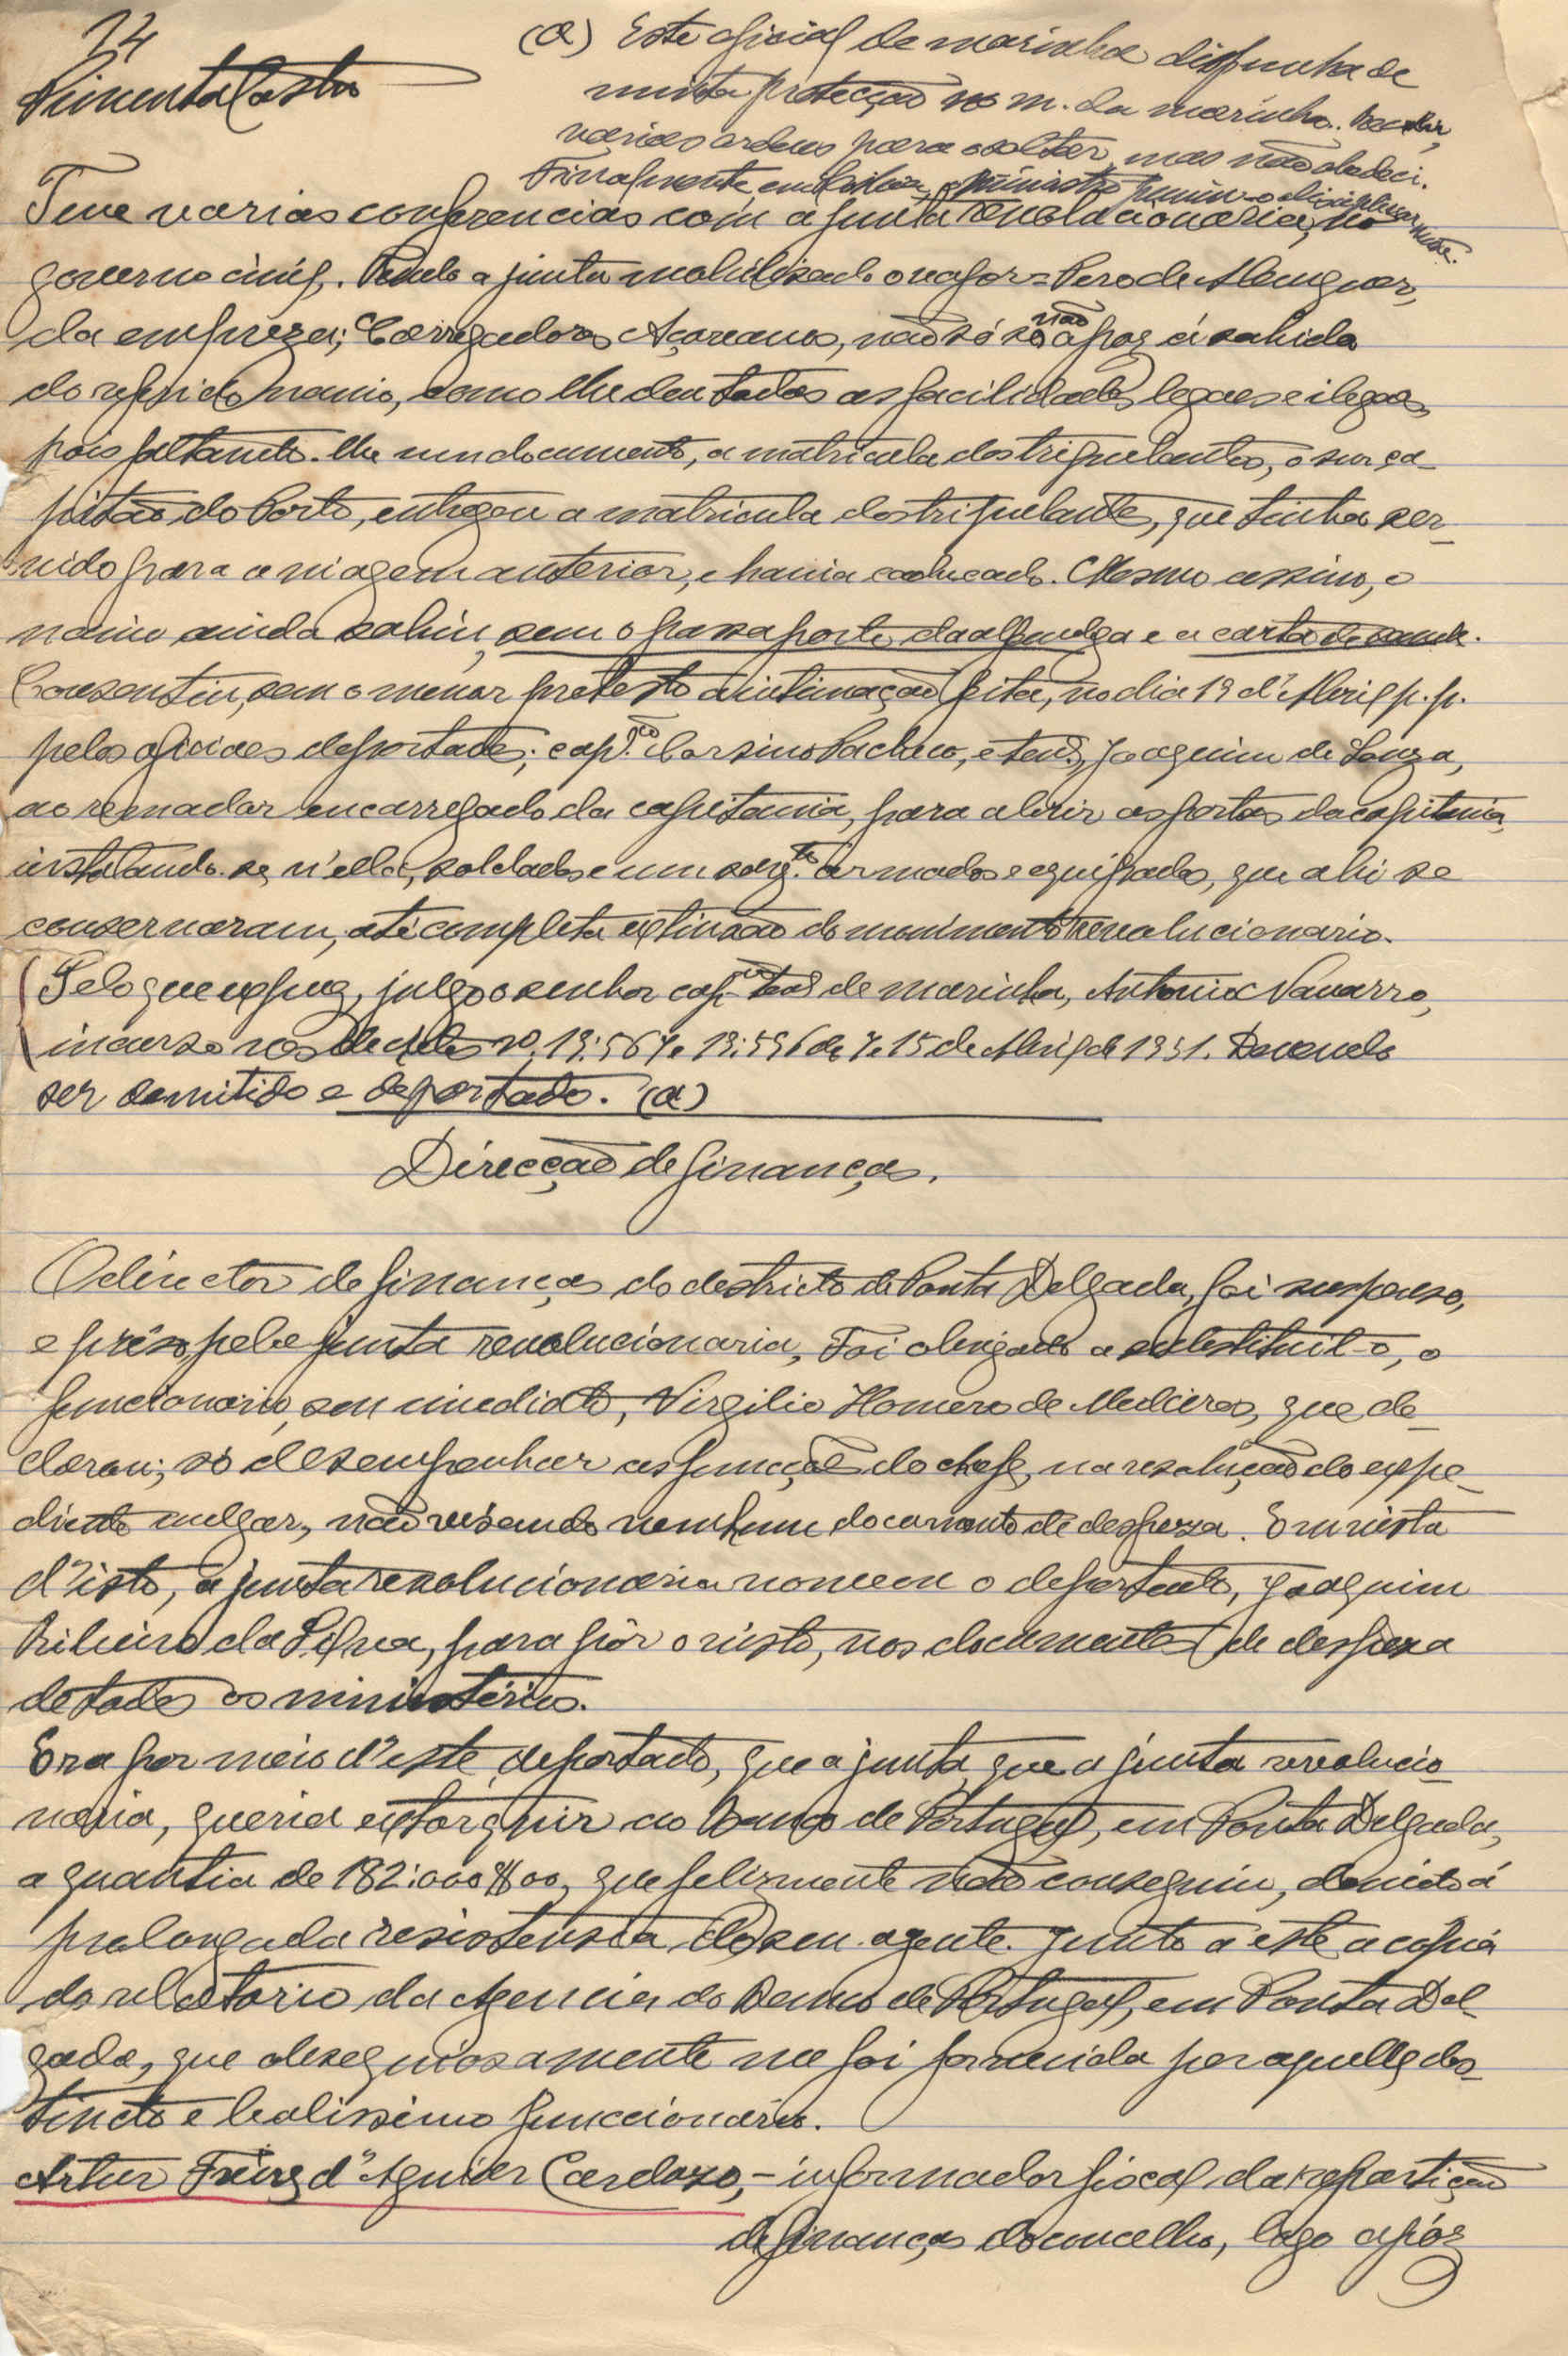 24
Pimenta Castro
(a) Este oficial de marinha dispunha de
muita protecção no m. da marinha. Recebi,
varias ordens para o soltar, mas não obedeci.
Finalmente em Lisboa, o ministro puniu-o disciplinarmente.
Teve varias conferencias com a junta revolucionaria, no
governo civil. Tendo a junta mobilisado o vapor = Pero de Alenquer,
da empreza; Carregadores Açoreanos, não só se não opoz á sahida
do referido navio, como lhe deu todas as facilidades legaes e ilegaes,
pois faltando-lhe um documento, a matricula dos tripulantes, o snr ca-
pitão do Porto, entregou a matricula dos tripulantes, que tinha ser-
vido para a viagem anterior, e havia caducado. Mesmo assim, o
navio ainda sahiu, sem o passaporte da alfandega e a carta de saude.
Consentiu, sem o menor protesto á intimação feita, no dia 19 d'Abril p. p.
pelos oficiaes deportados; cap.tão Carsino Pacheco, e ten.te Joaquim de Souza,
ao remador encarregado da capitania, para abrir as portas da capitania,
instalando-se n'ella, soldados e um sarg.to armados e equipados, que ahi se
conservaram, até completa extinção do movimento revolucionario.
Pelo que expuz, julgo o senhor cap-ten de marinha, Antonio Navarro,
incurso nos Decretos nº 19:567 e 19:596 de 7 e 15 de Abril de 1931. Devendo
ser demitido e deportado. (a)
Direcção de finanças.
O director de finanças do destricto de Ponta Delgada, foi suspenso,
e prêso pela junta revolucionaria, Foi obrigado a substituil-o, o
funcionario, seu imediato, Virgilio Homero de Medeiros, que de-
clarou; só desempenhar as funcções do chefe, na resolução do expe-
diente vulgar, não visando nenhum documento de despeza. Em vista
d'isto, a junta revolucionaria nomeou o deportado, Joaquim
Ribeiro da Silva, para pôr o visto, nos documentos de despeza
de todos os ministérios.
Era por meio d'este deportado, que a junta que a junta revolucio-
naria, queria extorquir ao Banco de Portugal, em Ponta Delgada,
a quantia de 182:000$00, que felizmente não conseguiu, devido á
prolongada resistensia do seu agente. Junto a este a cópia
do relatorio da Agencia do Banco de Portugal, em Ponta Del-
gada, que obsequiosamente me foi fornecida por aquelle des-
tincto e lealissimo funccionario.
Artur Freire d'Aguiar Cardoso, - informador fiscal da repartição
de finanças do concelho, logo após